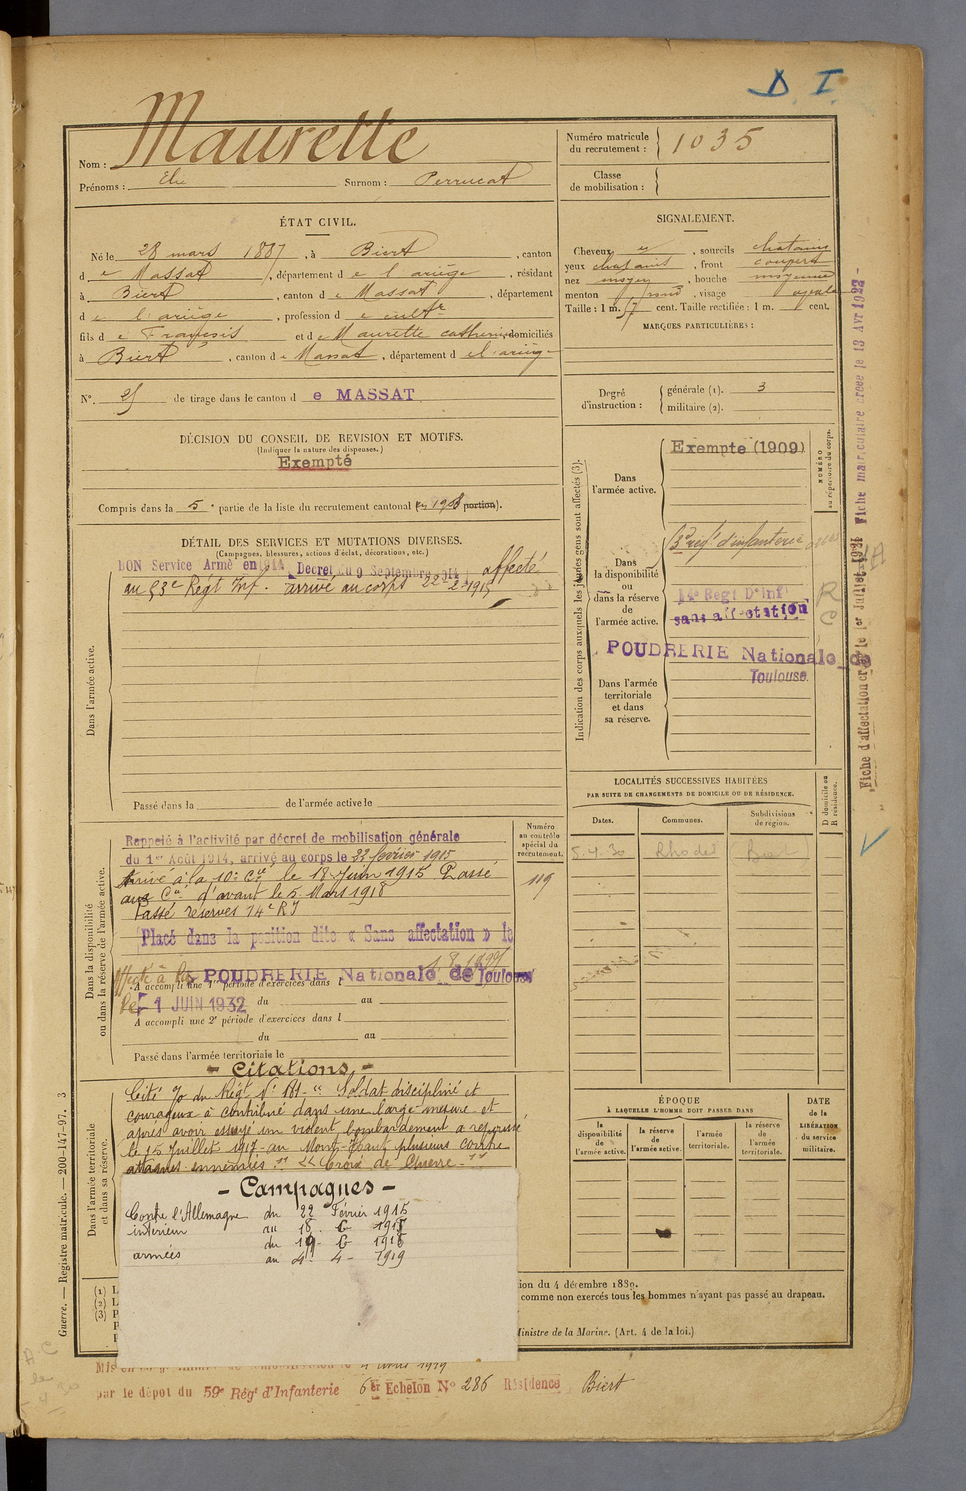 D. I.
Maurette
Nom :
Prénoms : Elie Surnom : Perrucat
Numéro matricule du recrutement : 1035
Classe de mobilisation :
ÉTAT CIVIL.
Né le 28 mars 1887, à Biert, canton
de Massat, département de l'ariège, résidant
à Biert, canton de Massat, département
de l'ariège, profession de cultr
fils de François et de Maurette catherine, domiciliés
à Biert, canton de Massat, département de l'ariège
SIGNALEMENT.
Cheveux, sourcils chatains
yeux chatains, front couvert
nez moyen, bouche moyenne
menton, visage ovale
Taille : 1 m. cent. Taille rectifiée : 1 m. cent.
MARQUES PARTICULIÈRES :
N° de tirage dans le canton de MASSAT
Degré d'instruction :
générale (1). 3
militaire (2).
DÉCISION DU CONSEIL DE REVISION ET MOTIFS.
(Indiquer la nature des dispenses.)
Exempté
Compris dans la 5e partie de la liste du recrutement cantonal (en 1908 portion).
DÉTAIL DES SERVICES ET MUTATIONS DIVERSES.
(Campagnes, blessures, actions d'éclat, décorations, etc.)
BON Service Armé en 1914 Décret du 9 Septembre 1914 affecté
au 53e Régt Inf. arrivé au corps 22-2-1915
Dans l'armée active.
Passé dans la de l'armée active le
Indication des corps auxquels les jeunes gens sont affectés (3).
Dans l'armée active.
Exempté (1909)
NUMÉRO au répertoire du corps.
Dans la disponibilité ou dans la réserve de l'armée active.
régt d'infanterie
14e Regt D'Inf
sans affectation
R
C
POUDRERIE Nationale de
Toulouse.
Dans l'armée territoriale et dans sa réserve.
Fiche d'affectation créée le 1er Juillet 1921 Fiche matriculaire créée le 13 Avr 1922 -
LOCALITÉS SUCCESSIVES HABITÉES
PAR SUITE DE CHANGEMENTS DE DOMICILE OU DE RÉSIDENCE.
Dates. Communes. Subdivisions de région. D domicile ou R résidence.
5.4.30
Dans la disponibilité ou dans la réserve de l'armée active.
Numéro au contrôle spécial du recrutement.
119
Rappelé à l'activité par décret de mobilisation générale
du 1er Août 1914, arrivé au corps le 22 février 1915
Arrivé à la 10e Cie le 18 Juin 1915 Passé
aux Cies d'avant le 5 Mars 1918
Passé réserves 14e RI
Placé dans la position dite « Sans affectation » le
Affecté à la POUDRERIE Nationale de Toulouse
A accompli une 1re période d'exercices dans l
Le 1 JUIN 1932 du au
A accompli une 2e période d'exercices dans l
du au
Passé dans l'armée territoriale le
- Citations. -
Dans l'armée territoriale et dans sa réserve.
Cité du Régt N° 181 - " Soldat discipliné et
courageux à contribué dans une large mesure et
après avoir essuyé un violent bombardement a repoussé
le 15 Juillet 1917 au Mont-Haut plusieurs contre
attaques ennemies " " Croix de Guerre "
- Campagnes -
Contre l'Allemagne du 22 Février 1915
intérieur au 18 - 6 - 1915
du 19 - 6 - 1915
armées au 4 - 4 - 1919
ÉPOQUE
À LAQUELLE L'HOMME DOIT PASSER DANS
la disponibilité de l'armée active.
la réserve de l'armée active.
l'armée territoriale.
la réserve de l'armée territoriale.
DATE de la LIBÉRATION du service militaire.
ion du 4 décembre 1889.
comme non exercés tous les hommes n'ayant pas passé au drapeau.
Ministre de la Marine. (Art. 4 de la loi.)
(1)
(2)
(3)
Guerre. — Registre matricule. — 200-147-97. 3
4 avril 1919
par le dépôt du 59e Régt d'Infanterie 6er Echelon N° 286 Résidence Biert